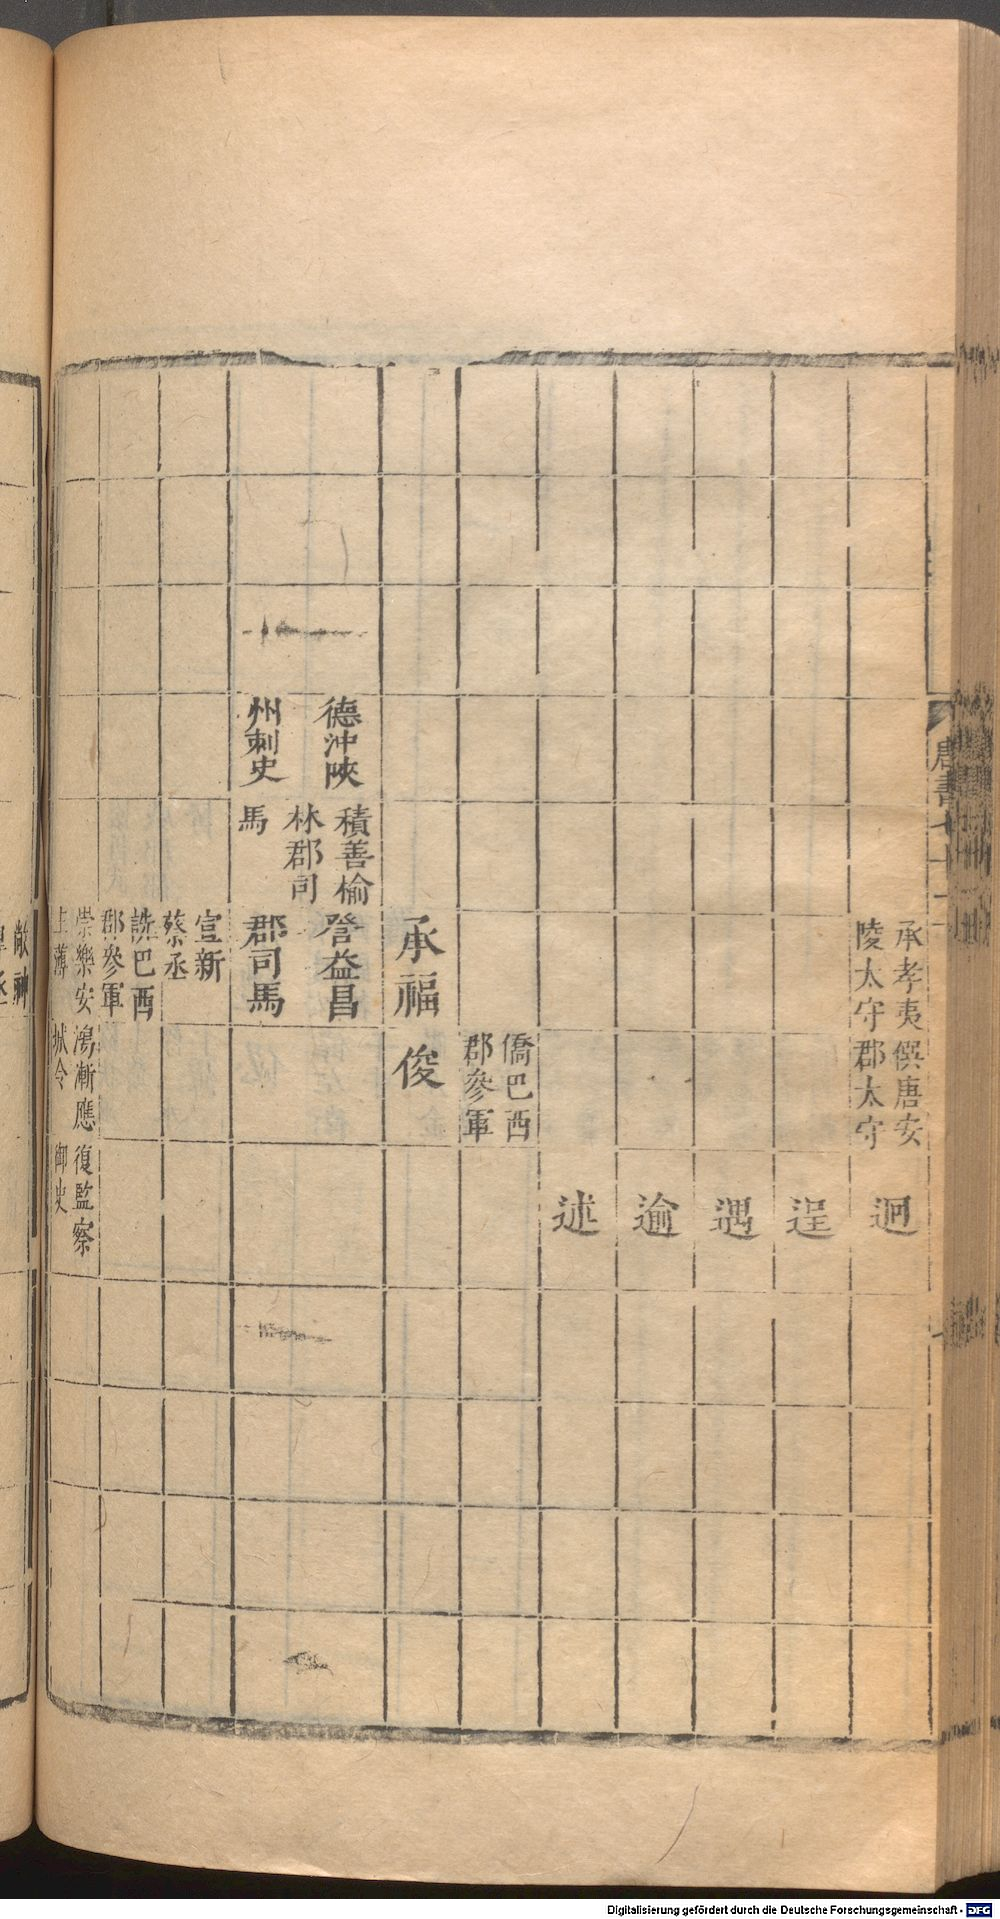 承孝夷
陵太守
僎唐安
郡太守
迥
逞
遇
逾
述
僑巴西
郡參軍
承福
俊
德沖陝
州刺史
積善榆
林郡司
馬
登益昌
郡司馬
宣新
蔡丞
詵巴西
郡參軍
崇樂安
主薄
鴻漸應
城令
復監察
御史
唐書七十
Digitalisierung gefördert durch die Deutsche Forschungsgemeinschaft - DFG